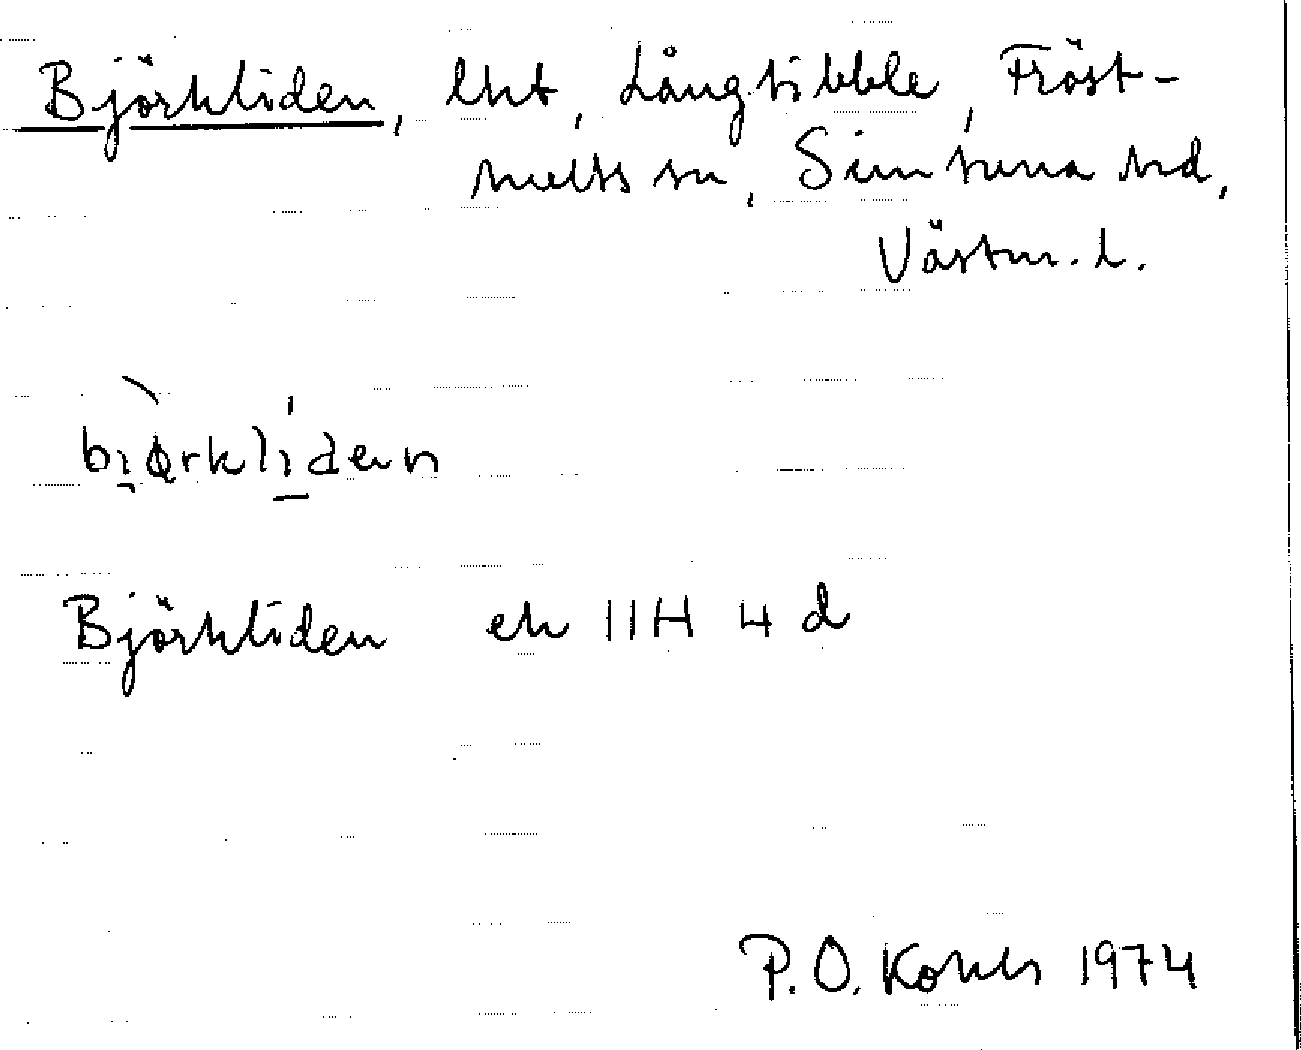 Björkliden, lht, Långtibble, Fröst-
hults sn, Simtuna hd,
Västm. l.
bi̯ørkli̱denn
Björkliden ek 11H 4 d
P.O.
1974